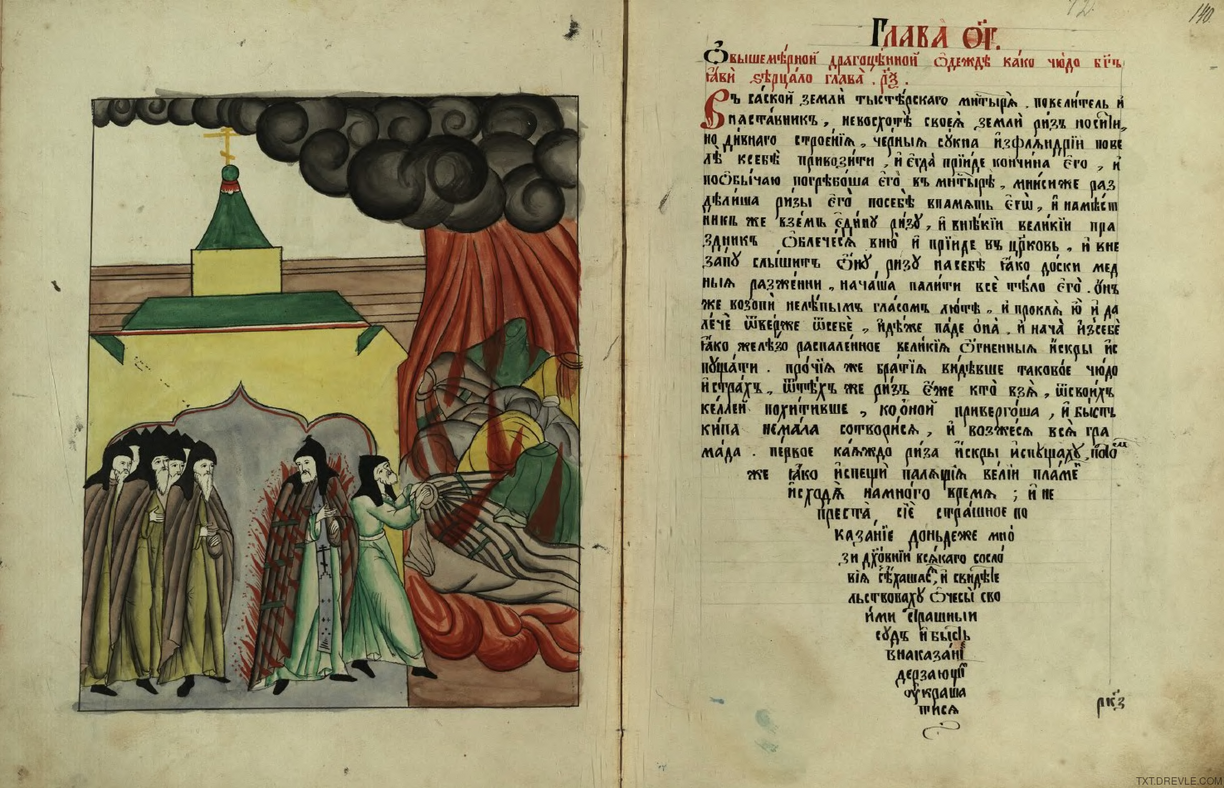 72
140
Глава ог҃.
Ѡ вышемѣрной драгоцѣнной ѻдеждѣ како чюдо бг҃ъ
ꙗви зерцало глава . р҃з .
Въ саской земли тыстѣрскаго митырѧ . повелитель и
наставникъ , невосхотѣ своеѧ земли ризъ носити ,
но дивнаго строенїѧ , черныѧ сукна изфлѧндрїи пове
лѣ ксебѣ привозити , и егда прїиде кончина его , и
поѻбычаю погребоша его въ митырѣ , мнисиже раз
дѣлиша ризы его посебѣ впамѧть егѡ , и намѣст
никъ же вземъ едину ризу , и внѣкїи великїи пра
здникъ ѻблечесѧ вню и прїиде въ цр҃ковь , и вне
запу слышитъ ѻну ризу насебѣ ꙗко доски мед
ныѧ разженни , начаша палити все тѣло его . онъ
же возопи нелѣпымъ гласомъ лютѣ , и проклѧ ю и да
лече ѿверже ѿсебе , идѣже паде она . и нача изсебе
ꙗко желѣзо распаленное великїѧ ѻгненныѧ искры ис
пущати . прочїѧ же братїѧ видѣвше таковое чюдо
и страхъ , ѿтѣхъ же ризъ еже кто взѧ , ѿсвоихъ
келлей похитивше , ко оной привергоша , и бысть
кипа немала сотворисѧ , и возжесѧ всѧ гра
мада . первое каѧждо риза искры испущаху , пото
же ꙗко испещи палѧщїѧ велїи пламѐ
исходѧ намного времѧ ; и не
преста , сїе страшное по
казанїе дондеже мно
зи дх҃овнїи всѧкаго сосло
вїѧ сѣхашас , и свидѣте
льствоваху ѻчесы сво
ими страшныи
судъ и бысть
внаказанї
дерзающи
украша
тисѧ
рк҃з
TXT.DREVLE.COM